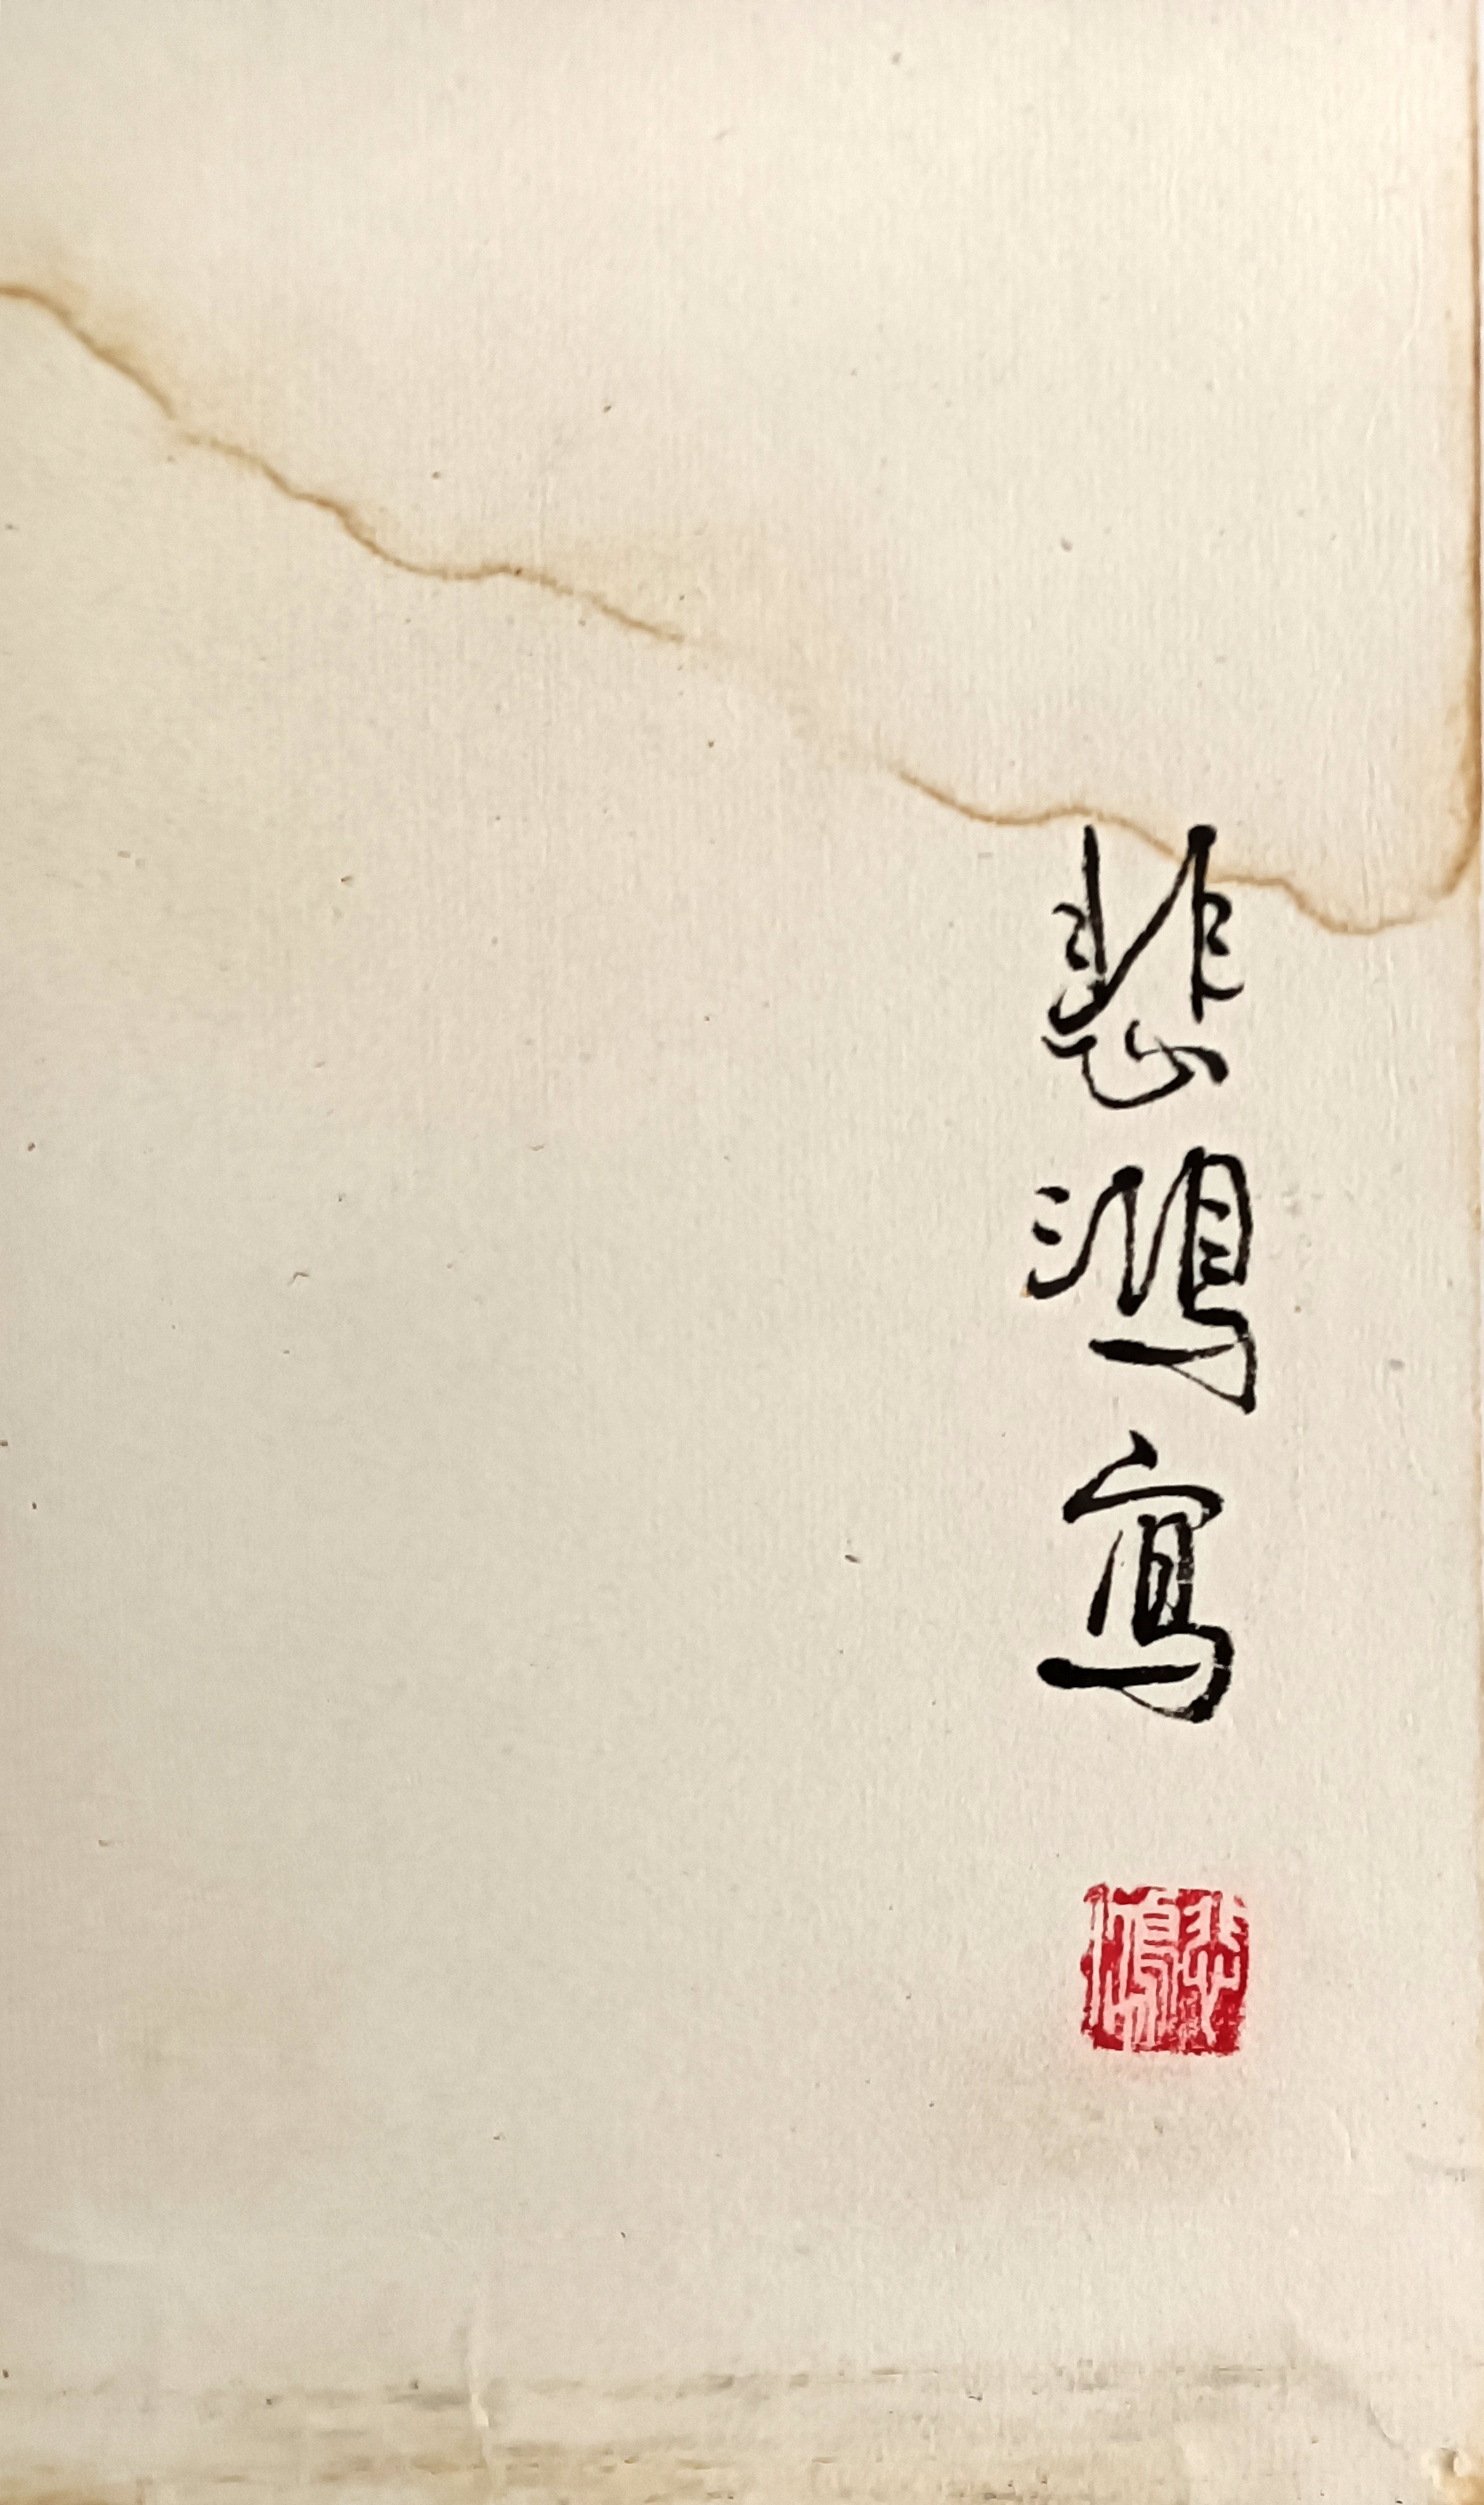 悲鴻寫
悲鴻